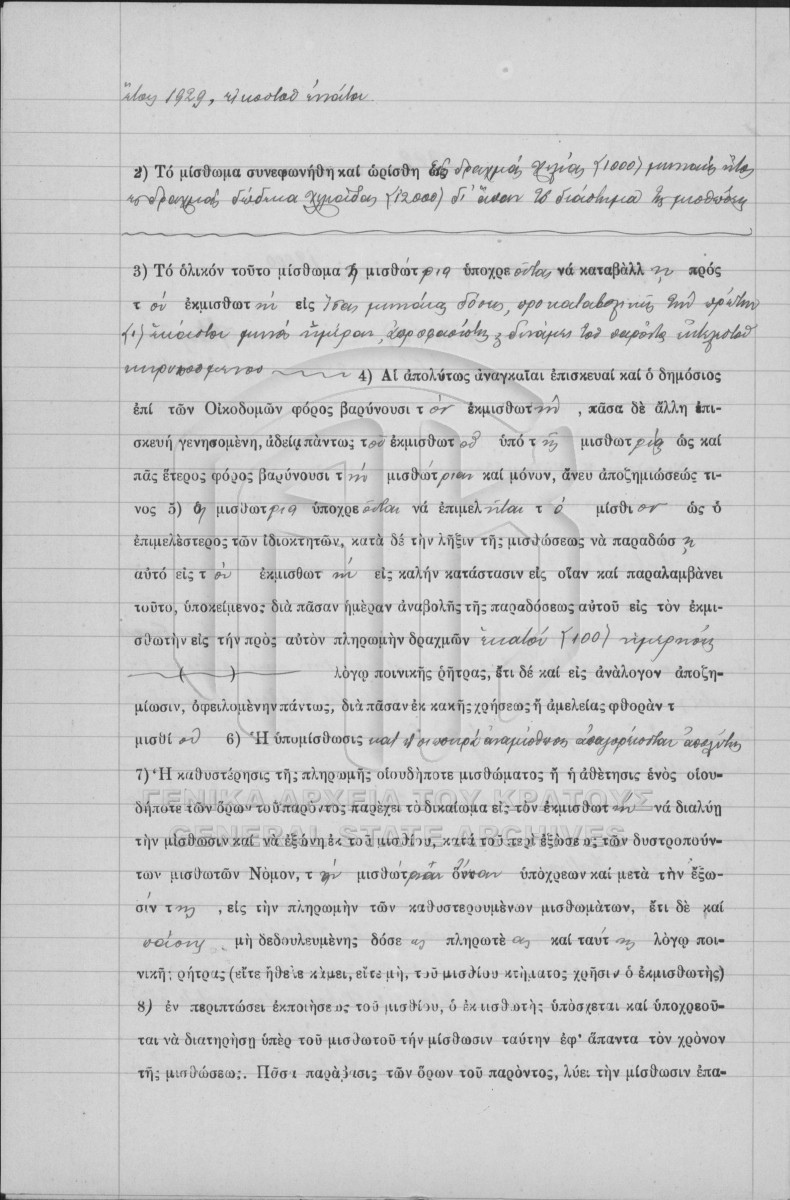 ἔτους 1929, εἰκοστοῦ ἐνάτου
2) Τό μίσθωμα συνεφωνήθη καί ὡρίσθη εἰς δραχμάς χιλίας (1000) μηνιαίως ἤτοι
εἰς δραχμάς δώδεκα χιλιάδας (12000) δι' ἅπαν τό διάστημα τῆς μισθώσεως
3) Τό ὁλικόν τοῦτο μίσθωμα ἡ μισθώτρια ὑποχρεοῦται νά καταβάλλῃ πρός
τόν ἐκμισθωτήν εἰς ἴσας μηνιαίας δόσεις, προκαταβολικῶς τήν πρώτην
(1) ἑκάστου μηνός ἡμέραν, δυνάμει τοῦ παρόντος ἐκτελεστοῦ
κηρυσσομένου 4) Αἱ ἀπολύτως ἀναγκαῖαι ἐπισκευαί καί ὁ δημόσιος
ἐπί τῶν Οἰκοδομῶν φόρος βαρύνουσι τόν ἐκμισθωτήν, πᾶσα δέ ἄλλη ἐπι-
σκευή γενησομένη, ἀδείᾳ πάντως τοῦ ἐκμισθωτοῦ ὑπό τῆς μισθωτρίας ὡς καί
πᾶς ἕτερος φόρος βαρύνουσι τήν μισθώτριαν καί μόνον, ἄνευ ἀποζημιώσεώς τι-
νος 5) Ἡ μισθώτρια ὑποχρεοῦται νά ἐπιμελῆται τό μίσθιον ὡς ὁ
ἐπιμελέστερος τῶν ἰδιοκτητῶν, κατά δέ τήν λῆξιν τῆς μισθώσεως νὰ παραδώσῃ
αὐτό εἰς τόν ἐκμισθωτήν εἰς καλήν κατάστασιν εἰς οἵαν καί παραλαμβάνει
τοῦτο, ὑποκείμενος διὰ πᾶσαν ἡμέραν ἀναβολῆς τῆς παραδόσεως αὐτοῦ εἰς τόν ἐκμι-
σθωτήν εἰς τήν πρὸς αὐτόν πληρωμήν δραχμῶν ἑκατόν (100) ἡμερησίως
λόγῳ ποινικῆς ῥήτρας, ἔτι δέ καί εἰς ἀνάλογον ἀποζη-
μίωσιν, ὀφειλομένην πάντως, διὰ πᾶσαν ἐκ κακῆς χρήσεως ἤ ἀμελείας φθορὰν τ
μισθίου 6) Ἡ ὑπομίσθωσις καί ἡ σιωπηρά ἀναμίσθωσις ἀπαγορεύονται ἀπολύτως
7) Ἡ καθυστέρησις τῆς πληρωμῆς οἱουδήποτε μισθώματος ἤ ἡ ἀθέτησις ἑνός οἱου-
δήποτε τῶν ὅρων τοῦ παρόντος παρέχει τό δικαίωμα εἰς τόν ἐκμισθωτήν νά διαλύῃ
τὴν μίσθωσιν καί νὰ ἐξώνῃ ἐκ τοῦ μισθίου, κατά τοῦ περί ἐξώσεως τῶν δυστροπούν-
των μισθωτῶν Νόμον, τήν μισθώτριαν οὖσαν ὑπόχρεων καί μετά τήν ἔξω-
σίν της, εἰς τὴν πληρωμήν τῶν καθυστερουμένων μισθωμάτων, ἔτι δέ καί
πάσης μή δεδουλευμένης δόσεως πληρωτέας καί ταύτης λόγῳ ποι-
νικῆς ρήτρας (εἴτε ἤθελε κάμει, εἴτε μή, τοῦ μισθίου κτήματος χρῆσιν ὁ ἐκμισθωτής)
8) ἐν περιπτώσει ἐκποιήσεως τοῦ μισθίου, ὁ ἐκμισθωτής ὑπόσχεται καί ὑποχρεοῦ-
ται νὰ διατηρήσῃ ὑπέρ τοῦ μισθωτοῦ τήν μίσθωσιν ταύτην ἐφ' ἅπαντα τόν χρόνον
τῆς μισθώσεως. Πᾶσα παράβασις τῶν ὅρων τοῦ παρόντος, λύει τήν μίσθωσιν ἐπα-
ΓΕΝΙΚΑ ΑΡΧΕΙΑ ΤΟΥ ΚΡΑΤΟΥΣ
GENERAL STATE ARCHIVES